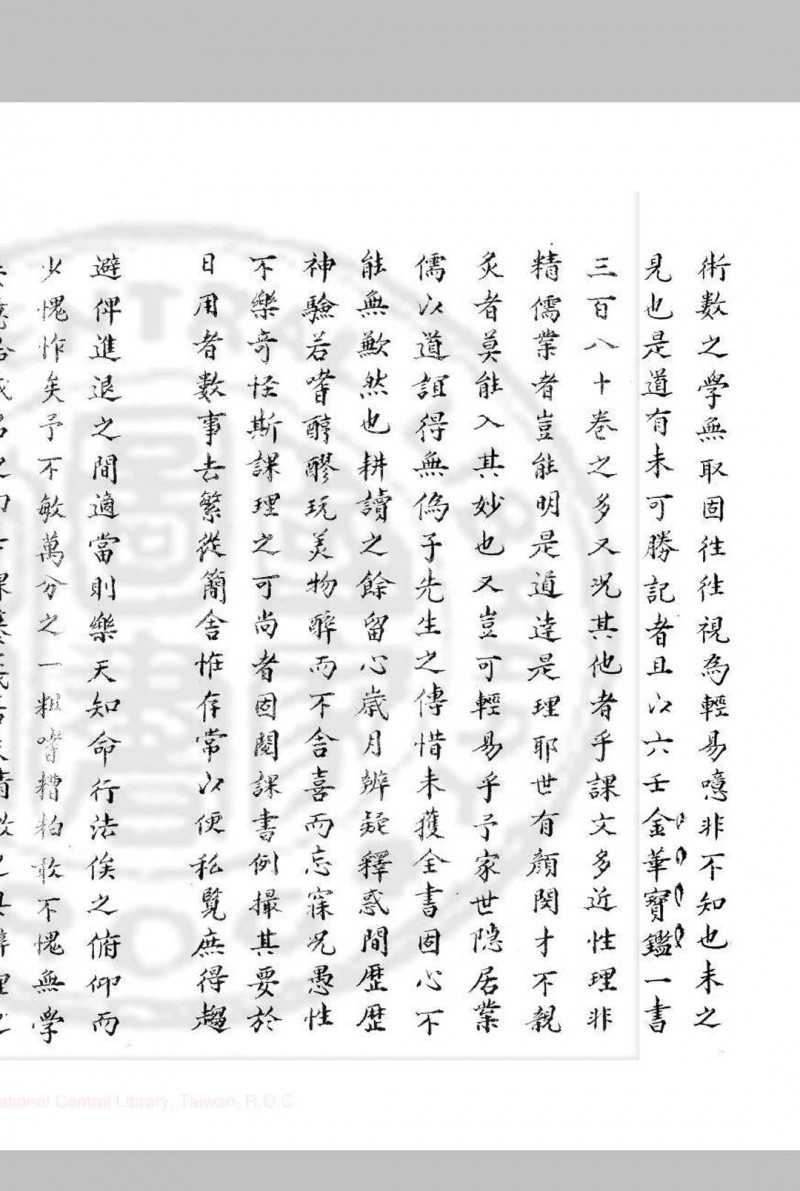 術數之學無取固往往視為輕易噫非不知也未之
見也是道有未可勝記者且以六壬金華寶鑑一書
三百八十卷之多又况其他者乎課文多近性理非
精儒業者豈能明是道達是理耶世有顏閔才不親
炙者莫能入其妙也又豈可輕易乎予家世隐居業
儒以道誼得無偽子先生之傳惜未獲全書固心不
能無歉然也耕讀之餘留心歲月辨疑釋惑間歴歴
神驗若嗜醇醪玩美物醉而不舍喜而忘寐况愚性
不樂奇怪斯課理之可尚者因閱課書例撮其要於
日用者數事去繁從簡舍惟存常以便私覽庶得趨
避俾進退之間適當則樂天知命行法俟之俯仰而
少愧怍矣予不敏萬分之一粗嗜糟粕敢不愧無學
National Central Library, Taiwan, R.O.C.